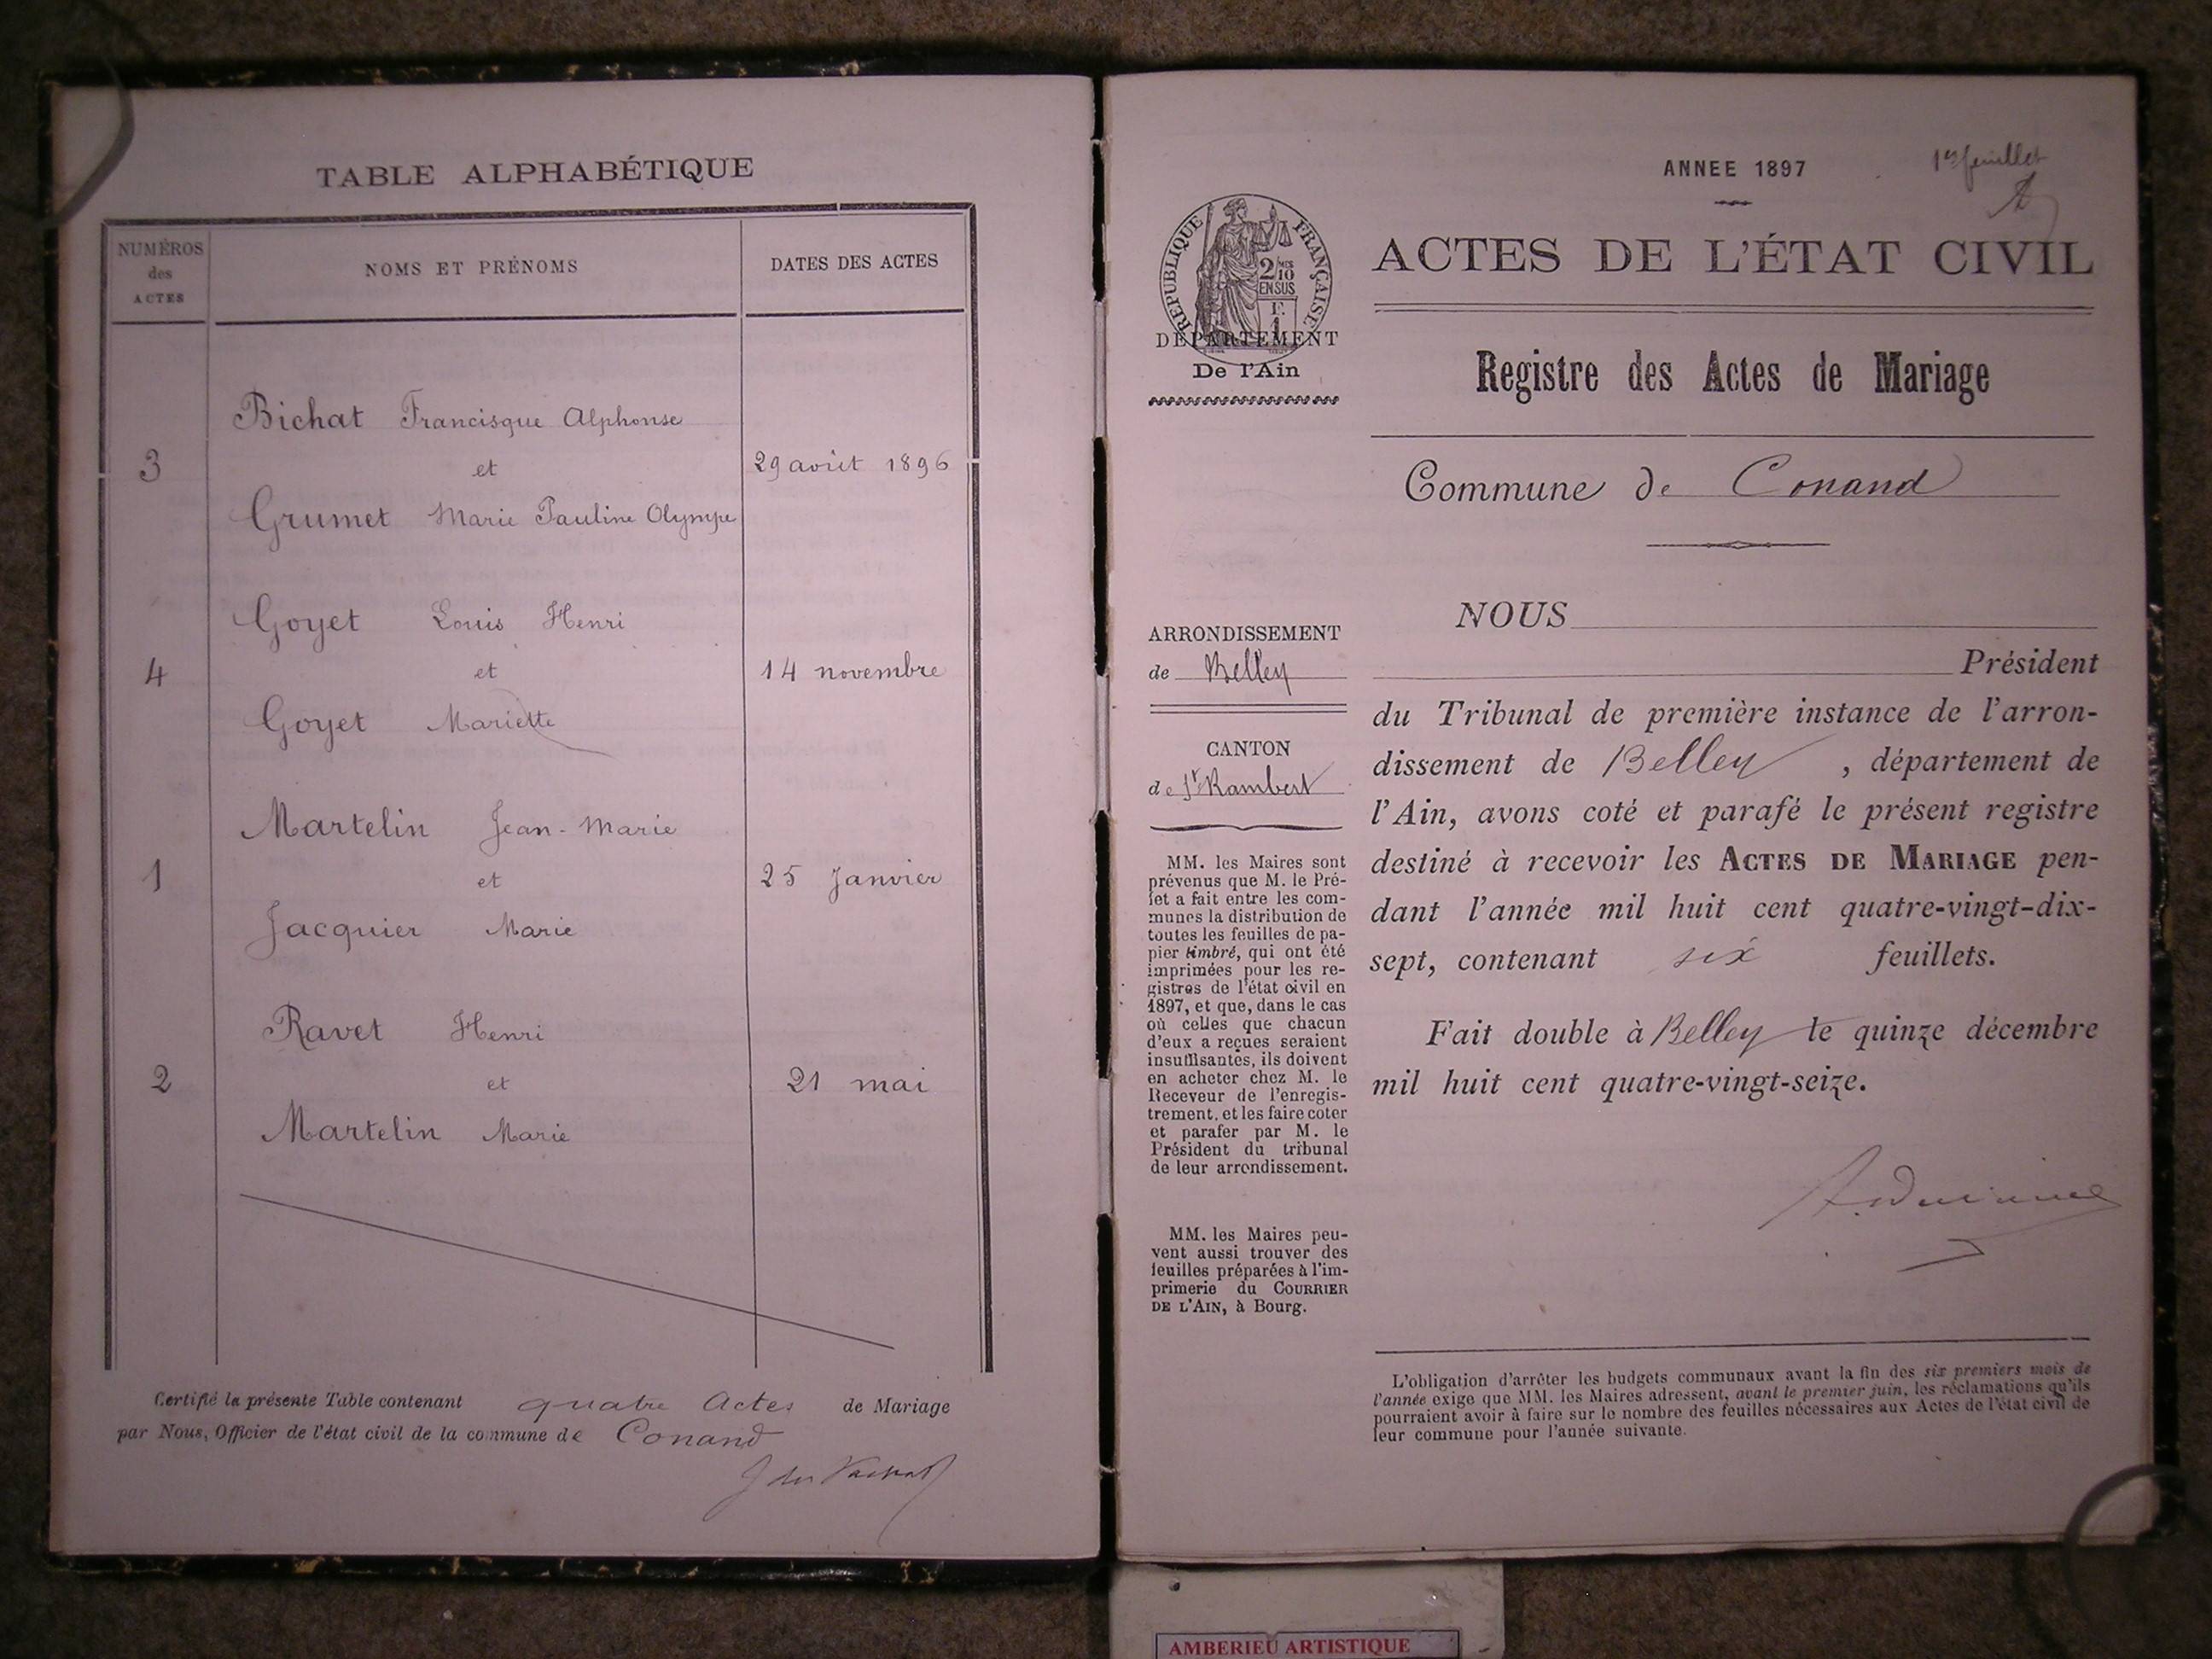 TABLE ALPHABÉTIQUE
NUMÉROS
des
ACTES
NOMS ET PRÉNOMS
DATES DES ACTES
Bichat Francisque Alphonse
3 et 29 août 1896
Grumet Marie Pauline Olympe
Goyet Louis Henri
4 et 14 novembre
Goyet Mariette
Martelin Jean-Marie
1 et 25 Janvier
Jacquier Marie
Ravet Henri
2 et 21 mai
Martelin Marie
Certifié la présente Table contenant quatre Actes de Mariage
par Nous, Officier de l'état civil de la commune de Conand
ANNEE 1897
1er feuillet
RÉPUBLIQUE FRANÇAISE
2/10
EN SUS
F.
1
DÉPARTEMENT
De l'Ain
ACTES DE L'ÉTAT CIVIL
Registre des Actes de Mariage
Commune de Conand
ARRONDISSEMENT
de Belley
CANTON
de St Rambert
MM. les Maires sont
prévenus que M. le Pré-
fet a fait entre les com-
munes la distribution de
toutes les feuilles de pa-
pier timbré, qui ont été
imprimées pour les re-
gistres de l'état civil en
1897, et que, dans le cas
où celles que chacun
d'eux a reçues seraient
insuffisantes, ils doivent
en acheter chez M. le
Receveur de l'enregis-
trement, et les faire coter
et parafer par M. le
Président du tribunal
de leur arrondissement.
MM. les Maires peu-
vent aussi trouver des
feuilles préparées à l'im-
primerie du COURRIER
DE L'AIN, à Bourg.
NOUS
Président
du Tribunal de première instance de l'arron-
dissement de Belley, département de
l'Ain, avons coté et parafé le présent registre
destiné à recevoir les ACTES DE MARIAGE pen-
dant l'année mil huit cent quatre-vingt-dix-
sept, contenant six feuillets.
Fait double à Belley le quinze décembre
mil huit cent quatre-vingt-seize.
L'obligation d'arrêter les budgets communaux avant la fin des six premiers mois de
l'année exige que MM. les Maires adressent, avant le premier juin, les réclamations qu'ils
pourraient avoir à faire sur le nombre des feuilles nécessaires aux Actes de l'état civil de
leur commune pour l'année suivante.
AMBERIEU ARTISTIQUE